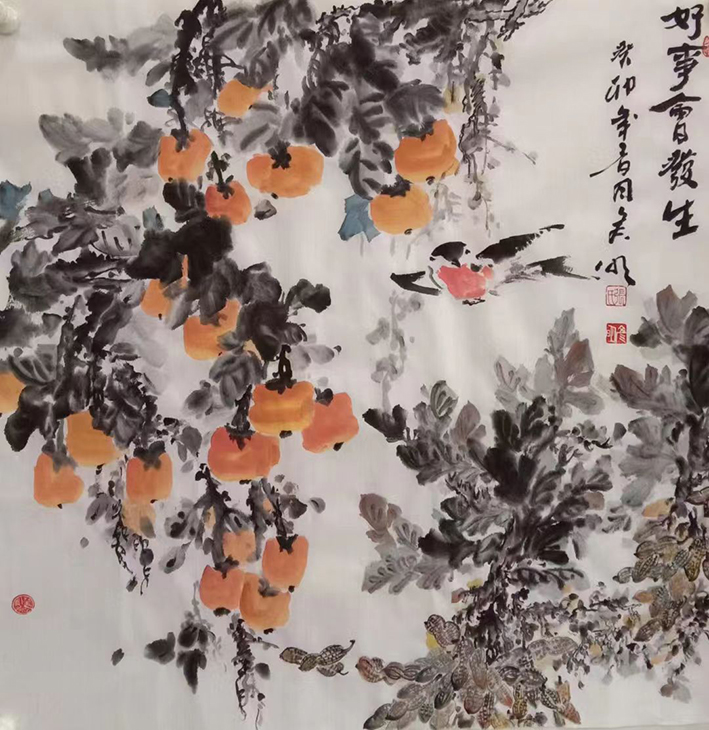 好事會發生
癸卯年春月兵